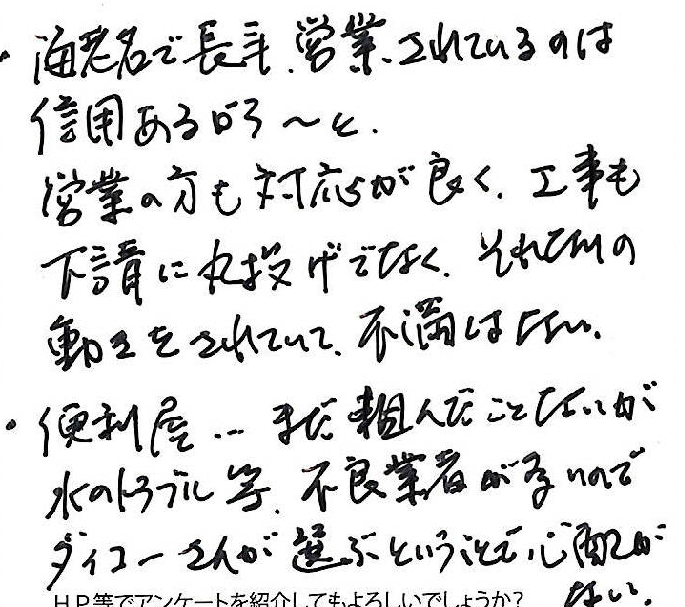 ・海老名で長年、営業されているのは
信用あるから〜と.
営業の方も対応が良く、工事も
下請に丸投げでなく、それなりの
動きをされていて、不満はない、
・便利屋… まだ頼んだことないが
水のトラブル等、不良業者が多いので
ダイコーさんが選ぶということで、心配が
ない、
HP等でアンケートを紹介してもよろしいでしょうか?